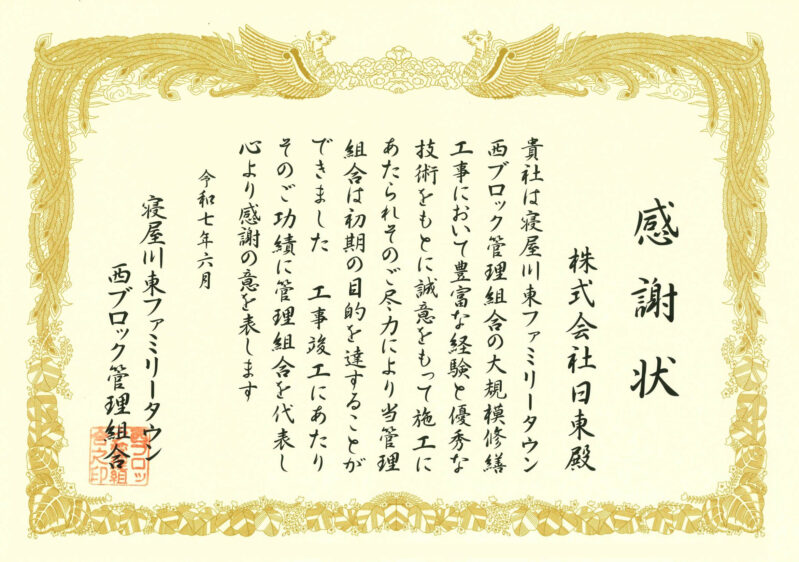 感謝状
株式会社日東殿
貴社は寝屋川東ファミリータウン
西ブロック管理組合の大規模修繕
工事において豊富な経験と優秀な
技術をもとに誠意をもって施工に
あたられそのご尽力により当管理
組合は初期の目的を達することが
できました 工事竣工にあたり
そのご功績に管理組合を代表し
心より感謝の意を表します
令和七年六月
寝屋川東ファミリータウン
西ブロック管理組合